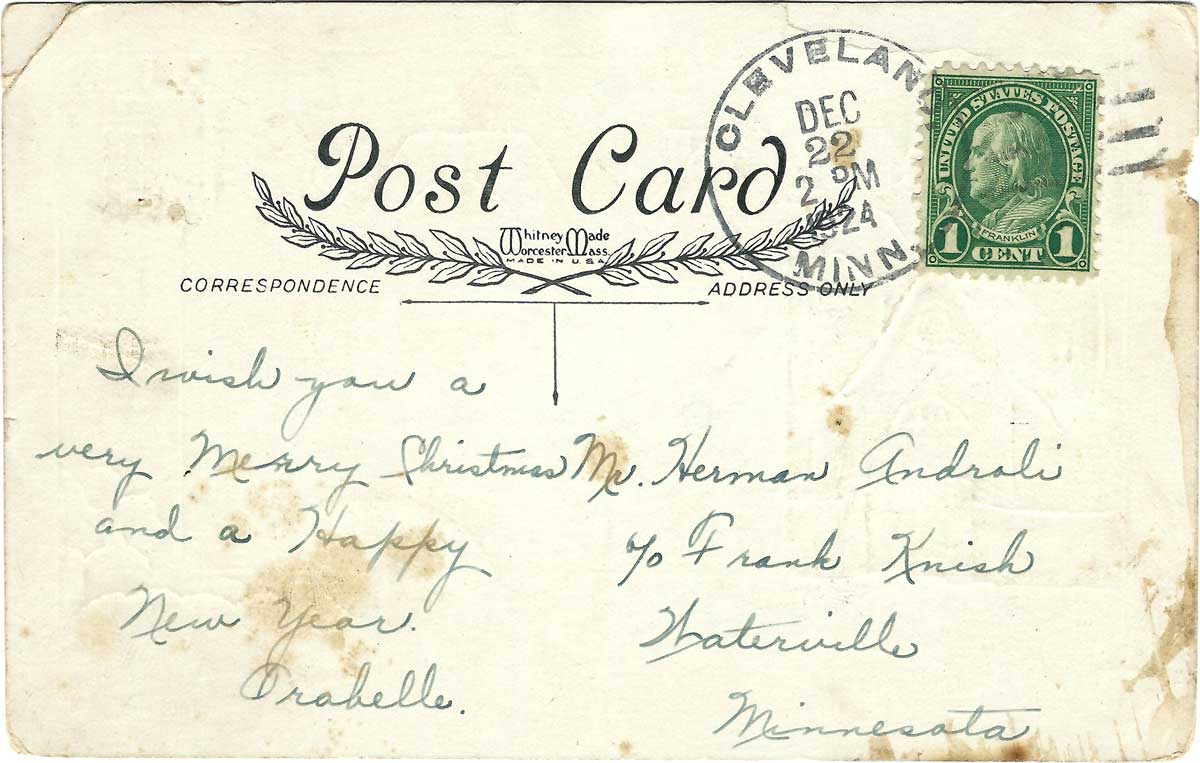 CLEVELAND
DEC
22
2 PM
1924
MINN.
UNITED STATES POSTAGE
FRANKLIN
1 CENT 1
Post Card
Whitney Made
Worcester Mass.
MADE IN U.S.A.
CORRESPONDENCE
ADDRESS ONLY
I wish you a
very Merry Christmas
and a Happy
New Year.
Orabelle.
Mr. Herman Androli
c/o Frank Knish
Waterville
Minnesota